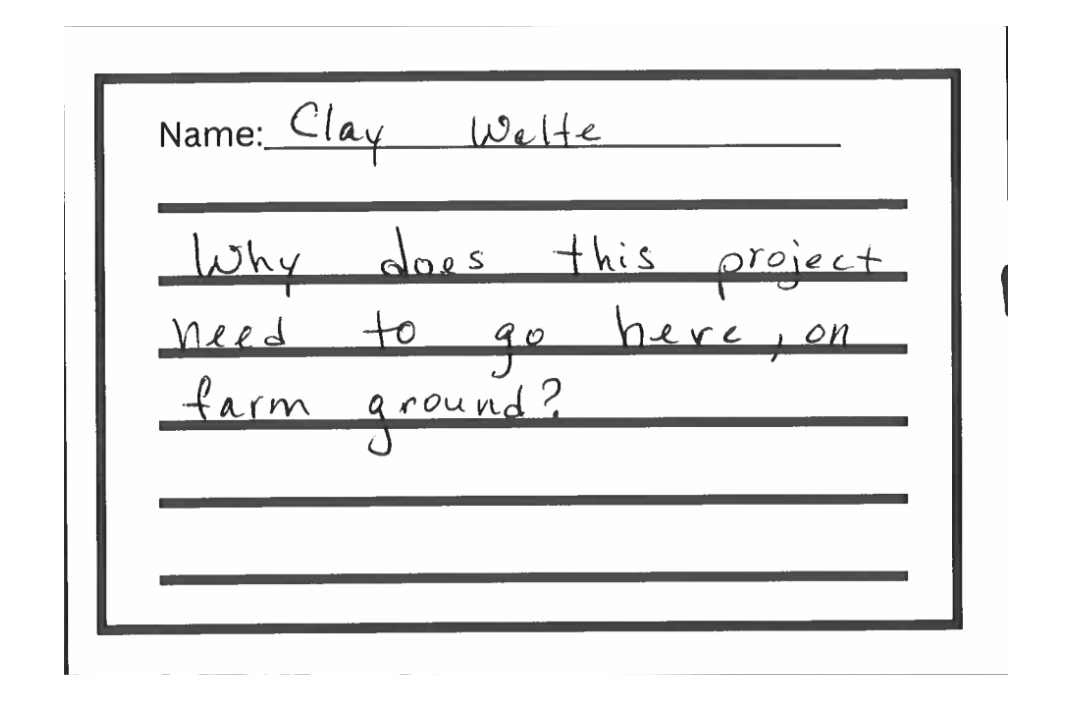 Name: Clay Welte
Why does this project
need to go here, on
farm ground?